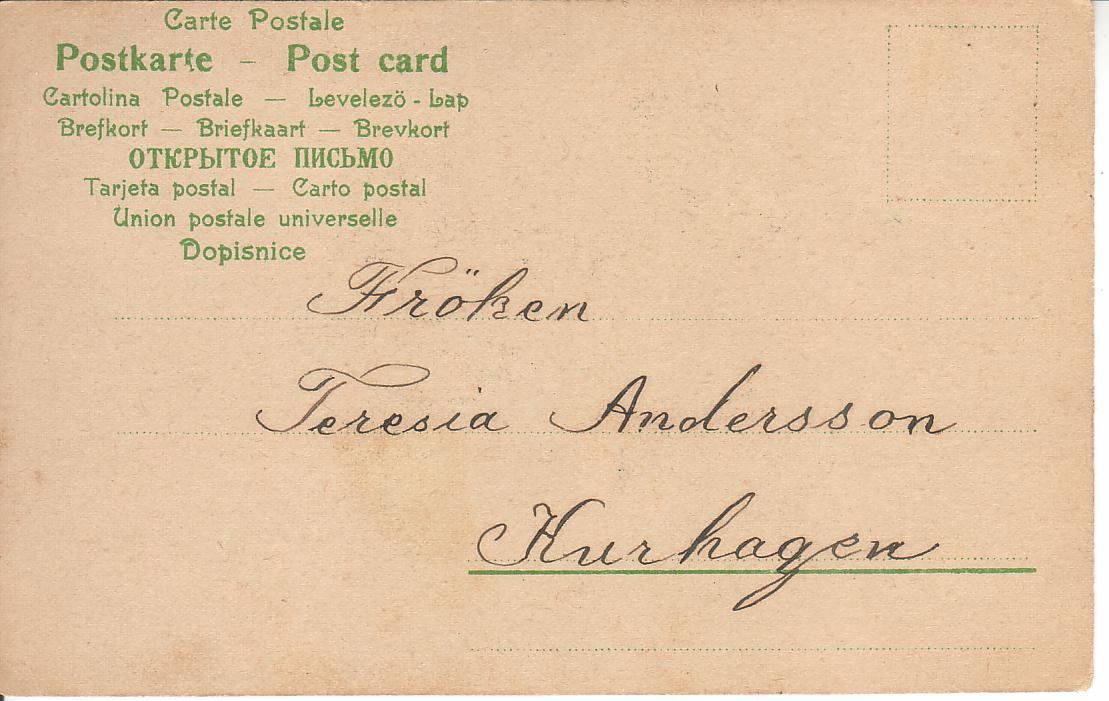 Carte Postale
Postkarte – Post card
Cartolina Postale — Levelezö - Lap
Brefkort — Briefkaart — Brevkort
ОТКРЫТОЕ ПИСЬМО
Tarjeta postal — Carto postal
Union postale universelle
Dopisnice
Fröken
Teresia Andersson
Kurhagen